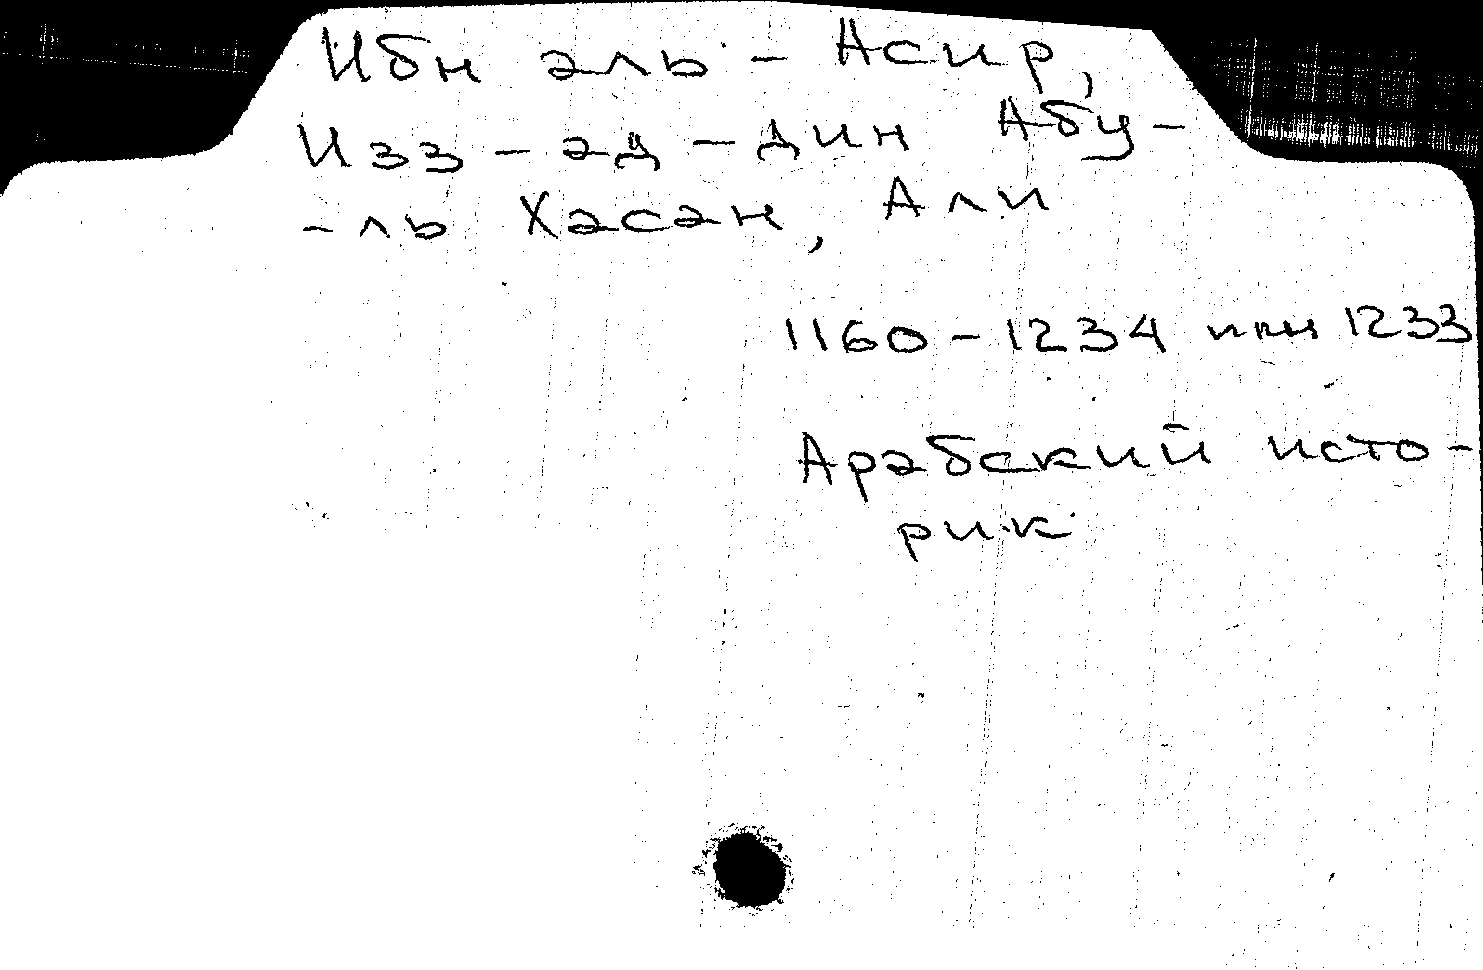 Ибн аль - Асир,
Изз - ад - дин Абу -
- ль Хасан, Али
1160 - 1234 или 1233
Арабский исто -
рик